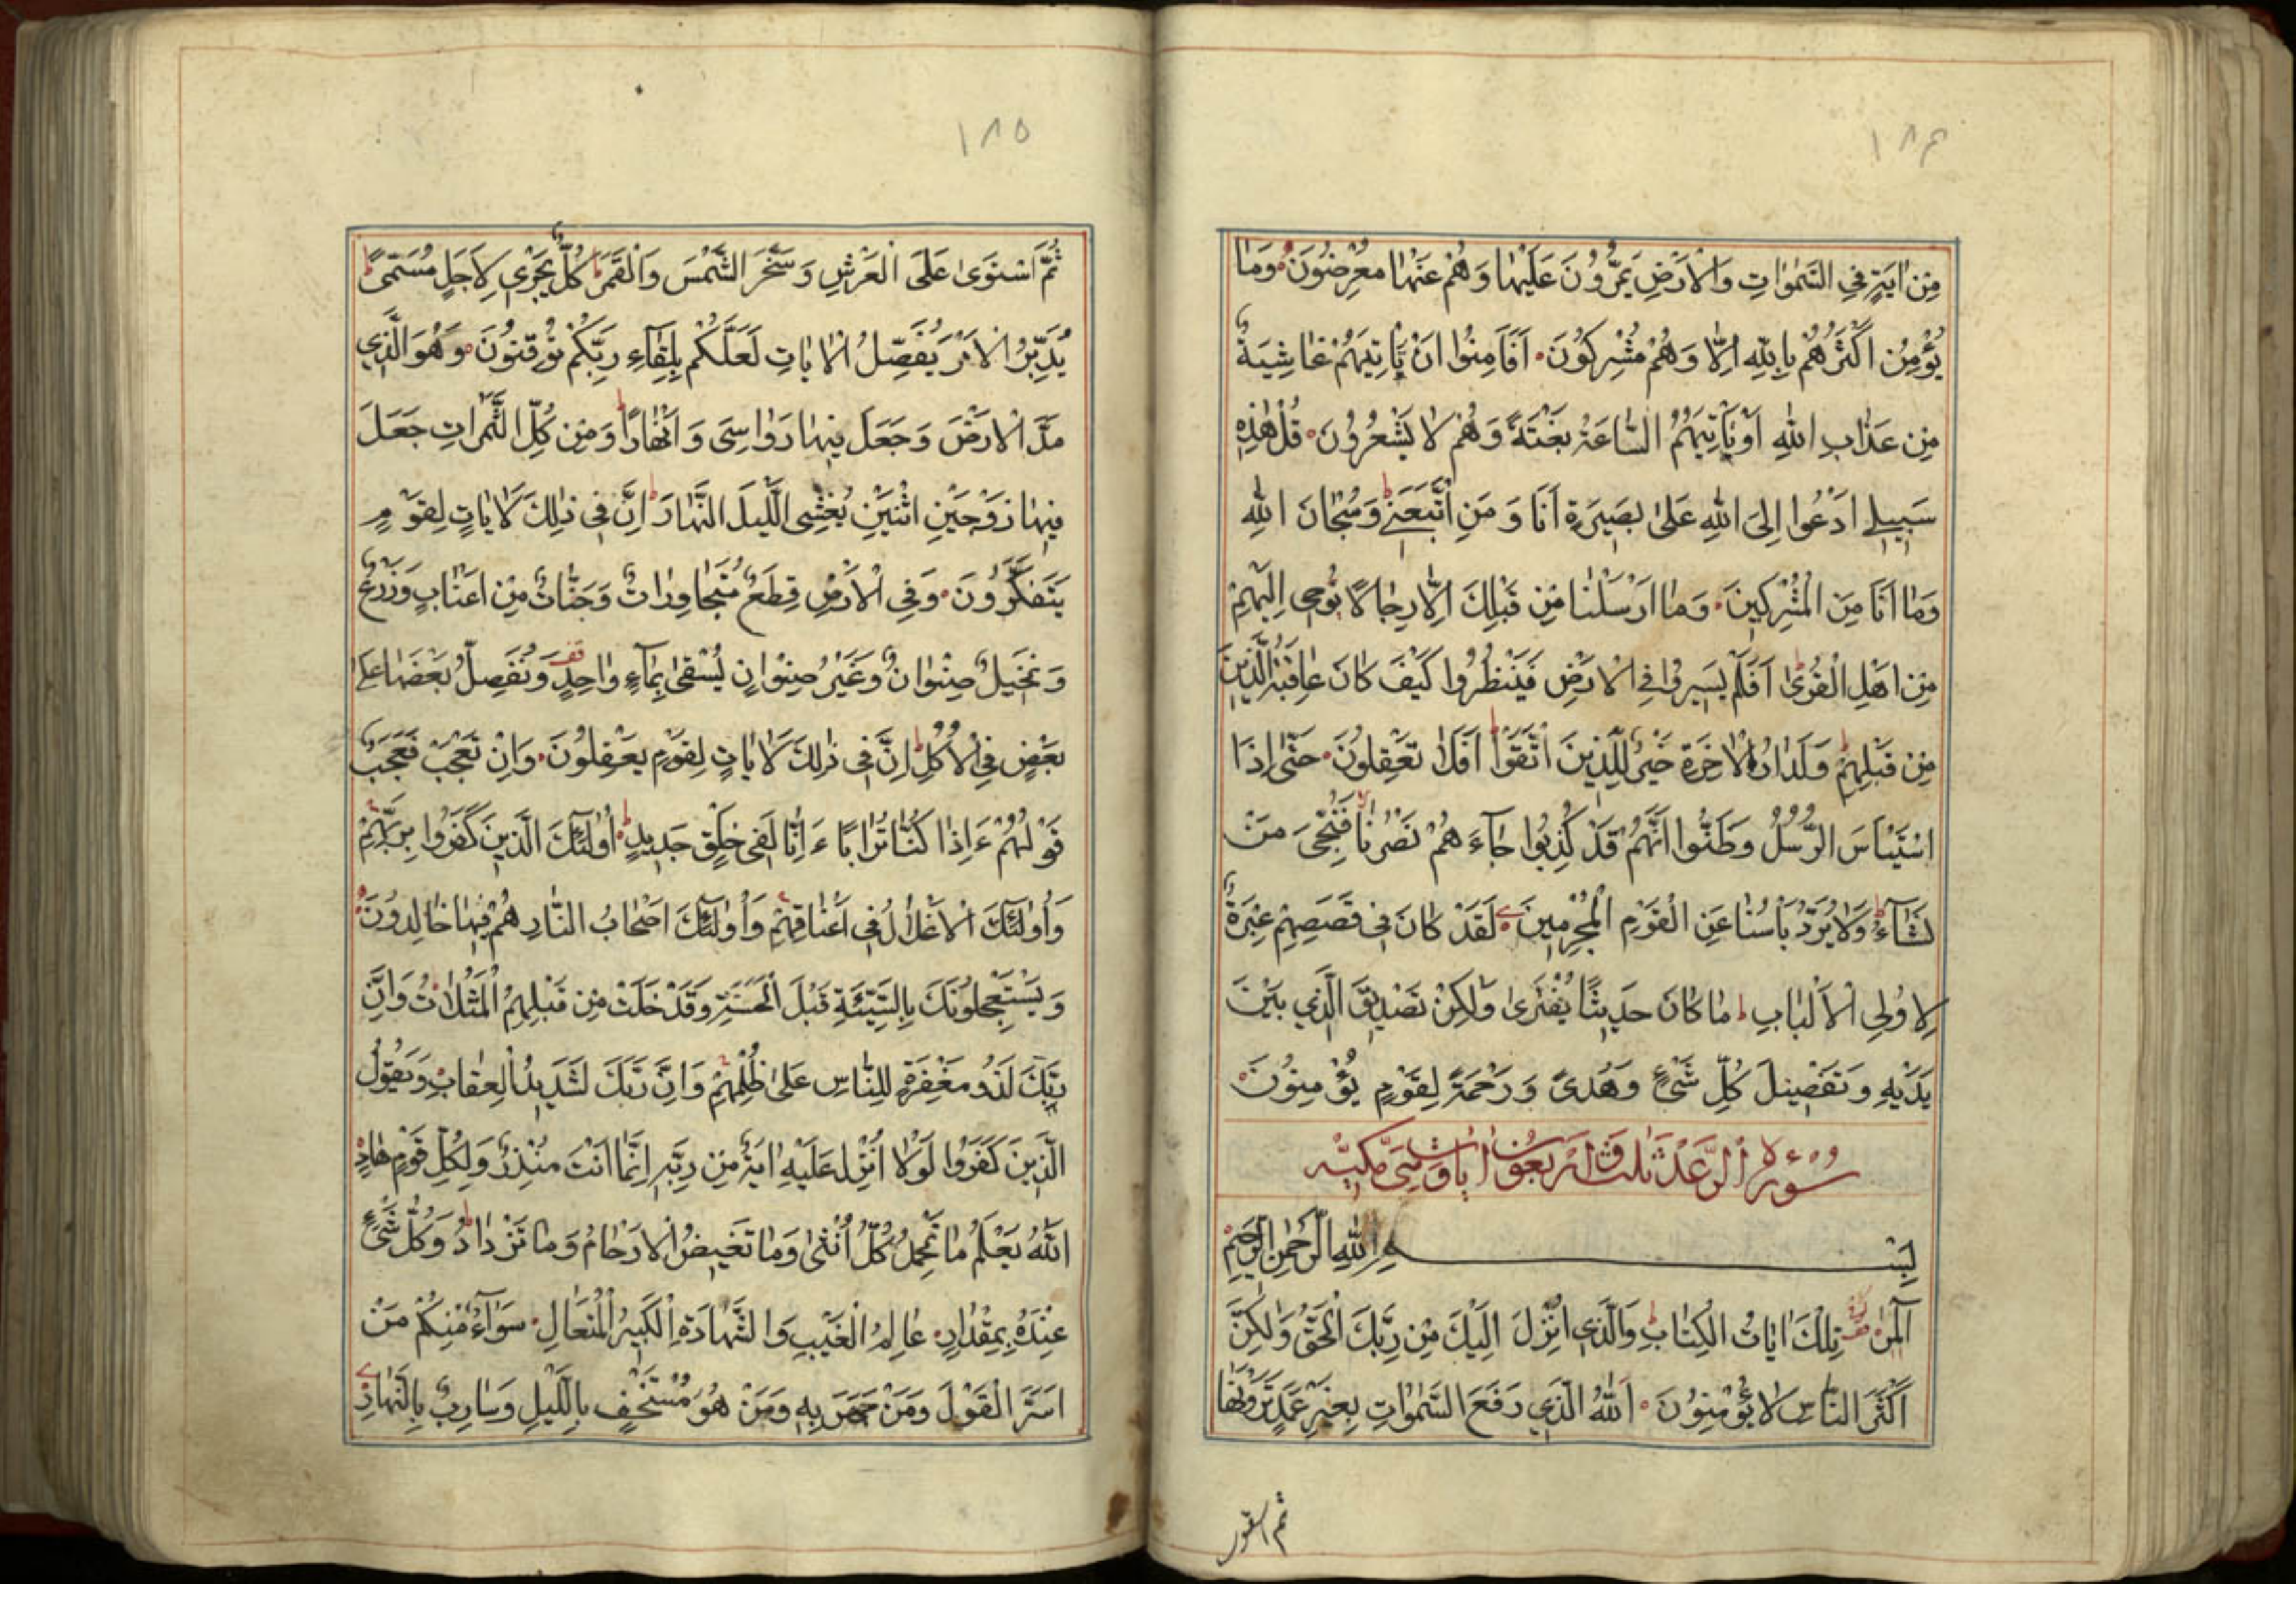 ١٨٤
مِنْ اٰيَةٍ فِي السَّمٰوَاتِ وَالْاَرْضِ يَمُرُّونَ عَلَيْهَا وَهُمْ عَنْهَا مُعْرِضُونَ وَمَا
يُؤْمِنُ اَكْثَرُهُمْ بِاللّٰهِ اِلَّا وَهُمْ مُشْرِكُونَ اَفَاَمِنُوا اَنْ تَاْتِيَهُمْ غَاشِيَةٌ
مِنْ عَذَابِ اللّٰهِ اَوْ تَاْتِيَهُمُ السَّاعَةُ بَغْتَةً وَهُمْ لَا يَشْعُرُونَ قُلْ هٰذِهِ
سَبِيلِي اَدْعُوا اِلَى اللّٰهِ عَلٰى بَصِيرَةٍ اَنَا وَمَنِ اتَّبَعَنِي ط وَسُبْحَانَ اللّٰهِ
وَمَا اَنَا مِنَ الْمُشْرِكِينَ وَمَا اَرْسَلْنَا مِنْ قَبْلِكَ اِلَّا رِجَالًا نُوحِي اِلَيْهِمْ
مِنْ اَهْلِ الْقُرٰى ط اَفَلَمْ يَسِيرُوا فِي الْاَرْضِ فَيَنْظُرُوا كَيْفَ كَانَ عَاقِبَةُ الَّذِينَ
مِنْ قَبْلِهِمْ ط وَلَدَارُ الْاٰخِرَةِ خَيْرٌ لِلَّذِينَ اتَّقَوْا ط اَفَلَا تَعْقِلُونَ حَتّٰى اِذَا
اسْتَيْـَٔسَ الرُّسُلُ وَظَنُّوا اَنَّهُمْ قَدْ كُذِبُوا جَاءَهُمْ نَصْرُنَا لا فَنُجِّيَ مَنْ
نَشَاءُ ط وَلَا يُرَدُّ بَاْسُنَا عَنِ الْقَوْمِ الْمُجْرِمِينَ لَقَدْ كَانَ فِي قَصَصِهِمْ عِبْرَةٌ
لِاُولِي الْاَلْبَابِ ط مَا كَانَ حَدِيثًا يُفْتَرٰى وَلٰكِنْ تَصْدِيقَ الَّذِي بَيْنَ
يَدَيْهِ وَتَفْصِيلَ كُلِّ شَيْءٍ وَهُدًى وَرَحْمَةً لِقَوْمٍ يُؤْمِنُونَ
سُورَةُ الرَّعْدِ ثَلٰث وَاَرْبَعُونَ اٰيَات وَهِيَ مَكِّيَّة
بِسْمِ اللّٰهِ الرَّحْمٰنِ الرَّحِيمِ
الٓمٓرٰ تِلْكَ اٰيَاتُ الْكِتَابِ ط وَالَّذِي اُنْزِلَ اِلَيْكَ مِنْ رَبِّكَ الْحَقُّ وَلٰكِنَّ
اَكْثَرَ النَّاسِ لَا يُؤْمِنُونَ اَللّٰهُ الَّذِي رَفَعَ السَّمٰوَاتِ بِغَيْرِ عَمَدٍ تَرَوْنَهَا
ثم استوى
١٨٥
ثُمَّ اسْتَوٰى عَلَى الْعَرْشِ وَسَخَّرَ الشَّمْسَ وَالْقَمَرَ ط كُلٌّ يَجْرِي لِاَجَلٍ مُسَمًّى ط
يُدَبِّرُ الْاَمْرَ يُفَصِّلُ الْاٰيَاتِ لَعَلَّكُمْ بِلِقَاءِ رَبِّكُمْ تُوقِنُونَ وَهُوَ الَّذِي
مَدَّ الْاَرْضَ وَجَعَلَ فِيهَا رَوَاسِيَ وَاَنْهَارًا ط وَمِنْ كُلِّ الثَّمَرَاتِ جَعَلَ
فِيهَا زَوْجَيْنِ اثْنَيْنِ يُغْشِي اللَّيْلَ النَّهَارَ ط اِنَّ فِي ذٰلِكَ لَاٰيَاتٍ لِقَوْمٍ
يَتَفَكَّرُونَ وَفِي الْاَرْضِ قِطَعٌ مُتَجَاوِرَاتٌ وَجَنَّاتٌ مِنْ اَعْنَابٍ وَزَرْعٌ
وَنَخِيلٌ صِنْوَانٌ وَغَيْرُ صِنْوَانٍ يُسْقٰى بِمَاءٍ وَاحِدٍ قف وَنُفَضِّلُ بَعْضَهَا عَلٰى
بَعْضٍ فِي الْاُكُلِ ط اِنَّ فِي ذٰلِكَ لَاٰيَاتٍ لِقَوْمٍ يَعْقِلُونَ وَاِنْ تَعْجَبْ فَعَجَبٌ
قَوْلُهُمْ ءَاِذَا كُنَّا تُرَابًا ءَاِنَّا لَفِي خَلْقٍ جَدِيدٍ ط اُولٰئِكَ الَّذِينَ كَفَرُوا بِرَبِّهِمْ
وَاُولٰئِكَ الْاَغْلَالُ فِي اَعْنَاقِهِمْ وَاُولٰئِكَ اَصْحَابُ النَّارِ هُمْ فِيهَا خَالِدُونَ
وَيَسْتَعْجِلُونَكَ بِالسَّيِّئَةِ قَبْلَ الْحَسَنَةِ وَقَدْ خَلَتْ مِنْ قَبْلِهِمُ الْمَثُلَاتُ وَاِنَّ
رَبَّكَ لَذُو مَغْفِرَةٍ لِلنَّاسِ عَلٰى ظُلْمِهِمْ وَاِنَّ رَبَّكَ لَشَدِيدُ الْعِقَابِ وَيَقُولُ
الَّذِينَ كَفَرُوا لَوْلَا اُنْزِلَ عَلَيْهِ اٰيَةٌ مِنْ رَبِّهِ اِنَّمَا اَنْتَ مُنْذِرٌ وَلِكُلِّ قَوْمٍ هَادٍ
اَللّٰهُ يَعْلَمُ مَا تَحْمِلُ كُلُّ اُنْثٰى وَمَا تَغِيضُ الْاَرْحَامُ وَمَا تَزْدَادُ ط وَكُلُّ شَيْءٍ
عِنْدَهُ بِمِقْدَارٍ عَالِمُ الْغَيْبِ وَالشَّهَادَةِ الْكَبِيرُ الْمُتَعَالِ سَوَاءٌ مِنْكُمْ مَنْ
اَسَرَّ الْقَوْلَ وَمَنْ جَهَرَ بِهِ وَمَنْ هُوَ مُسْتَخْفٍ بِاللَّيْلِ وَسَارِبٌ بِالنَّهَارِ